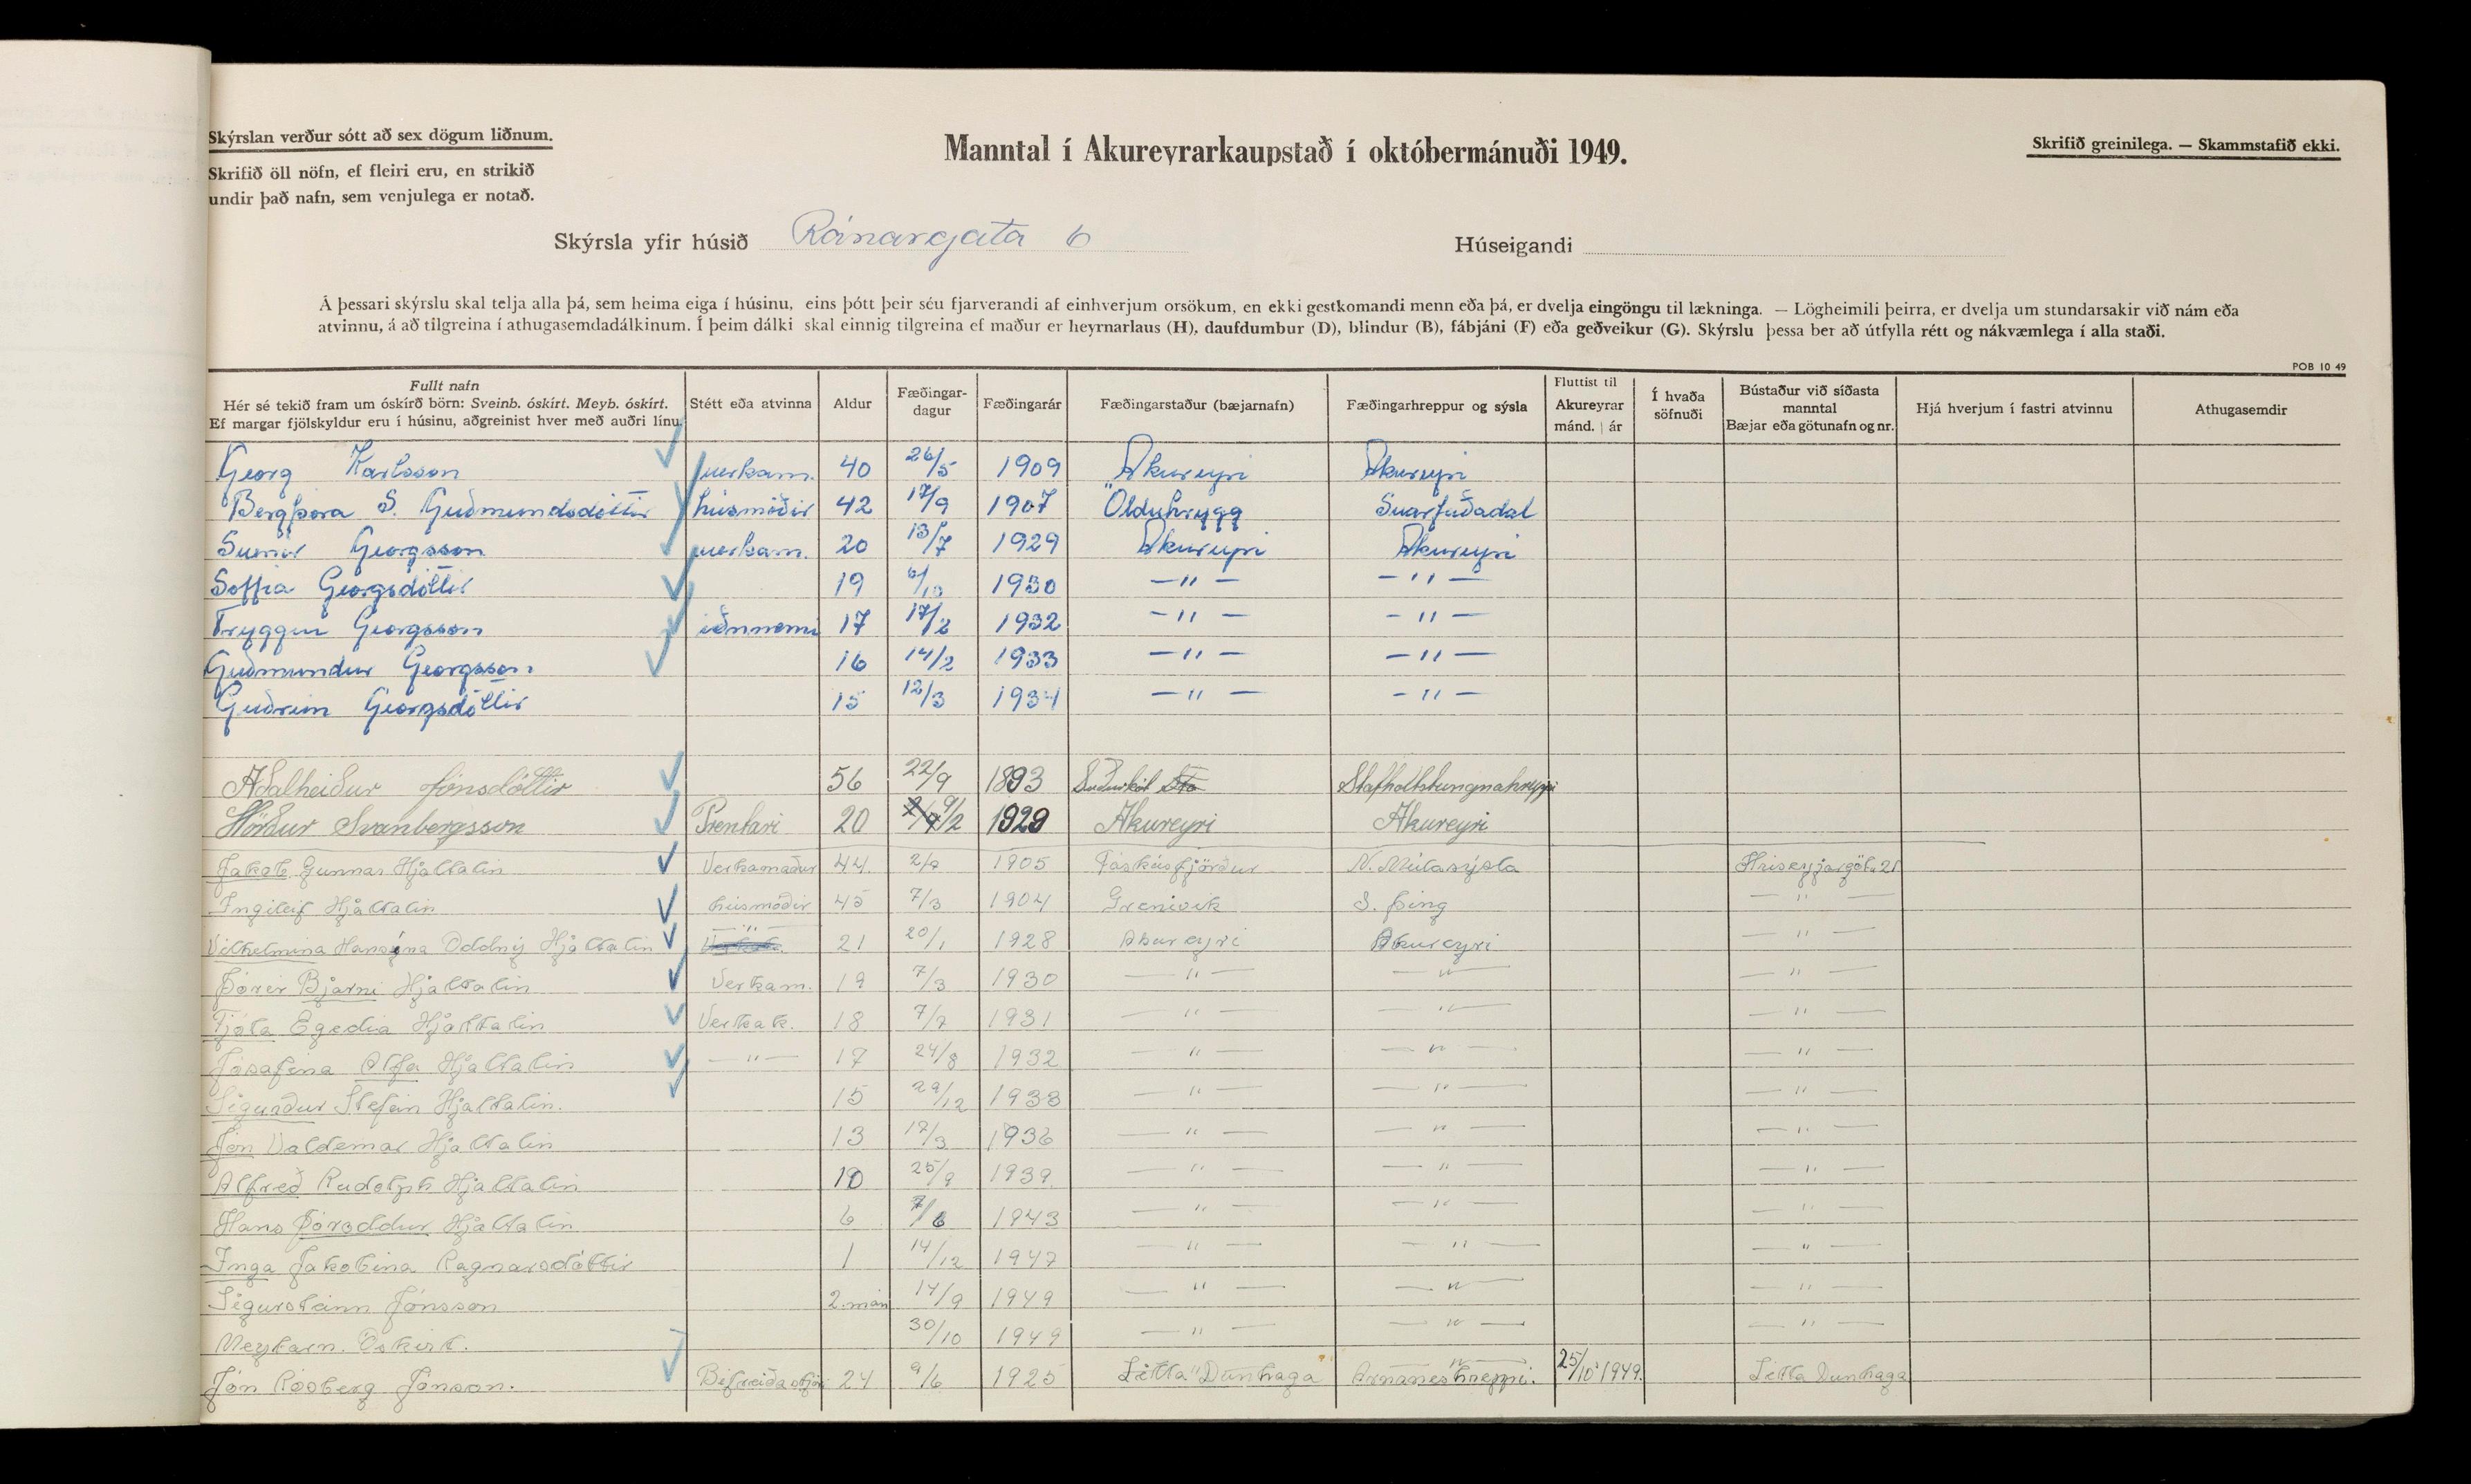 Skýrslan verður sótt að sex dögum liðnum.
Skrifið öll nöfn, ef fleiri eru, en strikið
undir það nafn, sem venjulega er notað.
Manntal í Akureyrarkaupstað í októbermánuði 1949.
Skrifið greinilega. — Skammstafið ekki.
Skýrsla yfir húsið Ránargata 6 Húseigandi
Á þessari skýrslu skal telja alla þá, sem heima eiga í húsinu, eins þótt þeir séu fjarverandi af einhverjum orsökum, en ekki gestkomandi menn eða þá, er dvelja eingöngu til lækninga. — Lögheimili þeirra, er dvelja um stundarsakir við nám eða
atvinnu, á að tilgreina í athugasemdadálkinum. Í þeim dálki skal einnig tilgreina ef maður er heyrnarlaus (H), daufdumbur (D), blindur (B), fábjáni (F) eða geðveikur (G). Skýrslu þessa ber að útfylla rétt og nákvæmlega í alla staði.
POB 10 49
Fullt nafn
Hér sé tekið fram um óskírð börn: Sveinb. óskírt. Meyb. óskírt.
Ef margar fjölskyldur eru í húsinu, aðgreinist hver með auðri línu.
Stétt eða atvinna
Aldur
Fæðingar-
dagur
Fæðingarár
Fæðingarstaður (bæjarnafn)
Fæðingarhreppur og sýsla
Fluttist til
Akureyrar
mánd. | ár
Í hvaða
söfnuði
Bústaður við síðasta
manntal
Bæjar eða götunafn og nr.
Hjá hverjum í fastri atvinnu
Athugasemdir
Georg Karlsson verkam. 40 26/5 1909 Akureyri Akureyri
Bergþora S. Guðmundsdóttir húsmóðir 42 17/9 1907 Ölduhrygg Svarfaðadal
Sverrir Georgsson verkam. 20 13/7 1929 Akureyri Akureyri
Soffia Georgsdóttir 19 6/10 1930 — " — — " —
Tryggvi Georgsson iðnnemi 17 17/2 1932 — " — — " —
Guðmundur Georgsson 16 14/2 1933 — " — — " —
Guðrún Georgsdóttir 15 12/3 1934 — " — — " —
Aðalheiður Jónsdóttir 56 22/9 1893 Stafholtstungnahreppi
Hörður Svanbergsson Prentari 20 9/2 1929 Akureyri Akureyri
Jakob Gunnar Hjaltalin Verkamaður 44. 1905 Fáskrúsfjörður N. Múlasýsla Hriseyjargötu 21
Ingileif Hjaltalin húsmóðir 45 7/3 1904 Grenivik S. Þing — " —
Vilhelmina Hansína Oddný Hjaltalin — " — 21 20/1 1928 Akureyri Akureyri — " —
Þórir Bjarni Hjaltalin Verkam. 19 7/3 1930 — " — — " — — " —
Fjóla Egedia Hjaltalin Verkak. 18 7/7 1931 — " — — " — — " —
Jósafina Alfa Hjaltalin — " — 17 24/8 1932 — " — — " — — " —
Sigurður Stefán Hjaltalin. 15 29/12 1933 — " — — " — — " —
Jón Valdemar Hjaltalin 13 17/3 1936 — " — — " — — " —
Alfreð Rudolph Hjaltalin 10 25/9 1939. — " — — " — — " —
Hans Þóroddur Hjaltalin 6 7/6 1943 — " — — " — — " —
Inga Jakobina Ragnarsdóttir 1 14/12 1947 — " — — " — — " —
Sigursteinn Jónsson 2. mán 14/9 1949 — " — — " — — " —
Meybarn. Óskírt. 30/10 1949 — " — — " — — " —
Jón Rósberg Jónson. Bifreiðastjóri 24 9/6 1925 Litla "Dunhaga" Arnaneshreppi. 25/10 1949. Litla Dunhaga